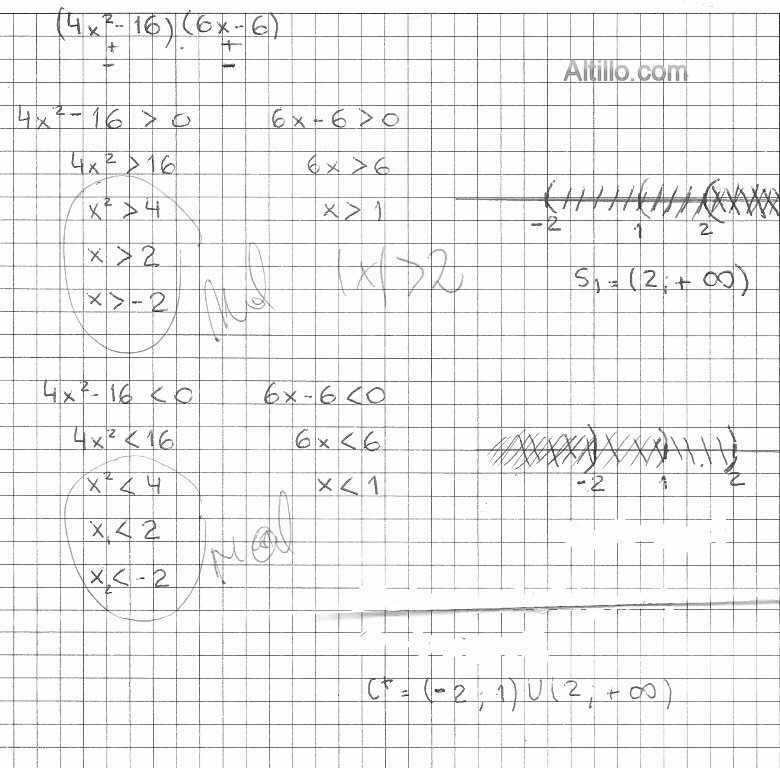 (4x²-16).(6x-6)
+ +
- -
Altillo.com
4x²-16 > 0 6x-6 > 0
4x² > 16 6x > 6
x² > 4 x > 1
x > 2
x > -2
Mal |x| > 2
-2 1 2
S₁ = (2; +∞)
4x²-16 < 0 6x-6 < 0
4x² < 16 6x < 6
x² < 4 x < 1
x₁ < 2
x₂ < -2
mal
-2 1 2
C⁺ = (-2; 1) U (2; +∞)